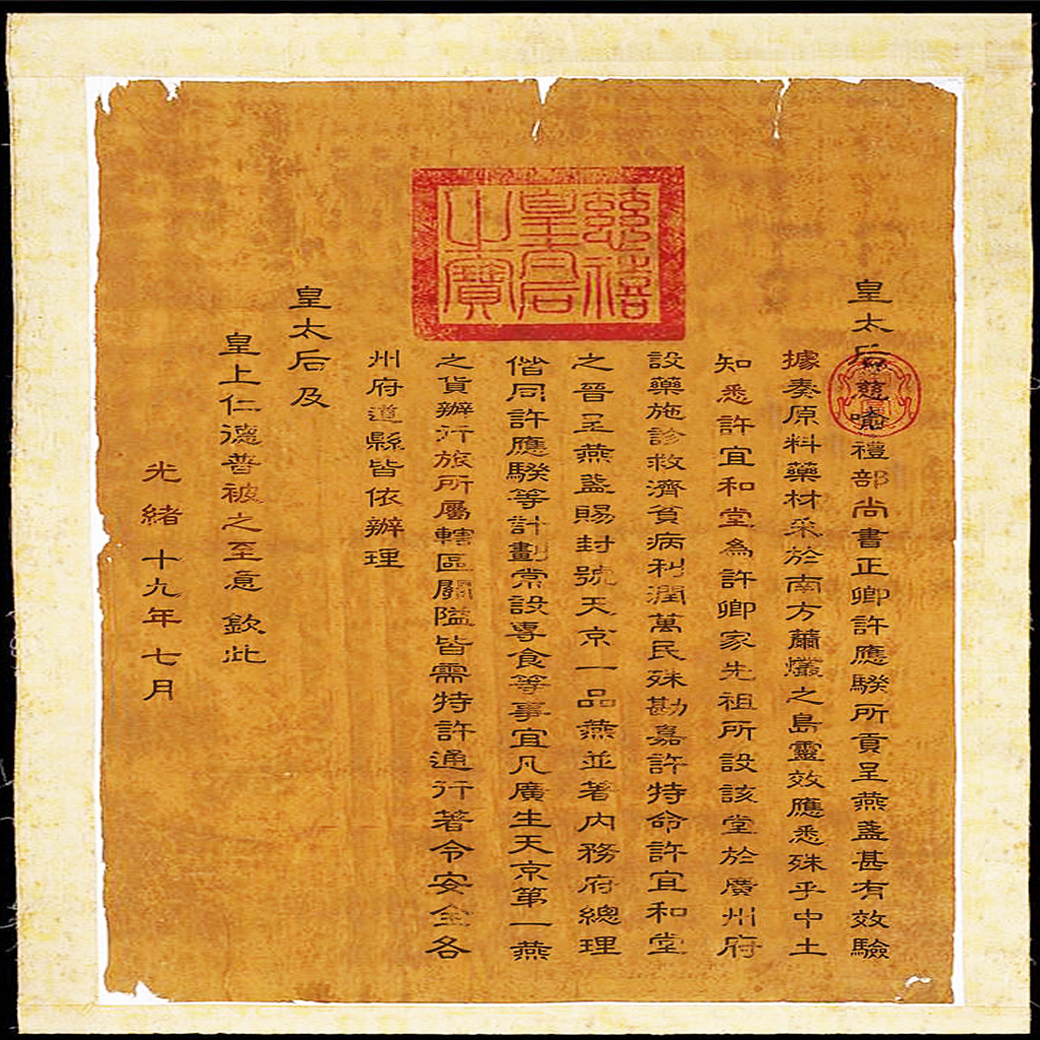 皇太后慈諭禮部尚書正卿許應騤所貢呈燕盞甚有效驗
據奏原料藥材采於南方蕭爞之島靈效應悉殊乎中土
知悉許宜和堂為許卿家先祖所設該堂於廣州府
設藥施診救濟貧病利潤萬民殊勘嘉許特命許宜和堂
之晉呈燕盞賜封號天京一品燕並著內務府總理
偕同許應騤等計劃常設專食等事宜凡廣生天京第一燕
之貨辦行旅所屬轄區關隘皆需特許通行著令安全各
州府道縣皆依辦理
皇太后及
皇上仁德普被之至意 欽此
光緒十九年七月
慈禧皇太后之寶